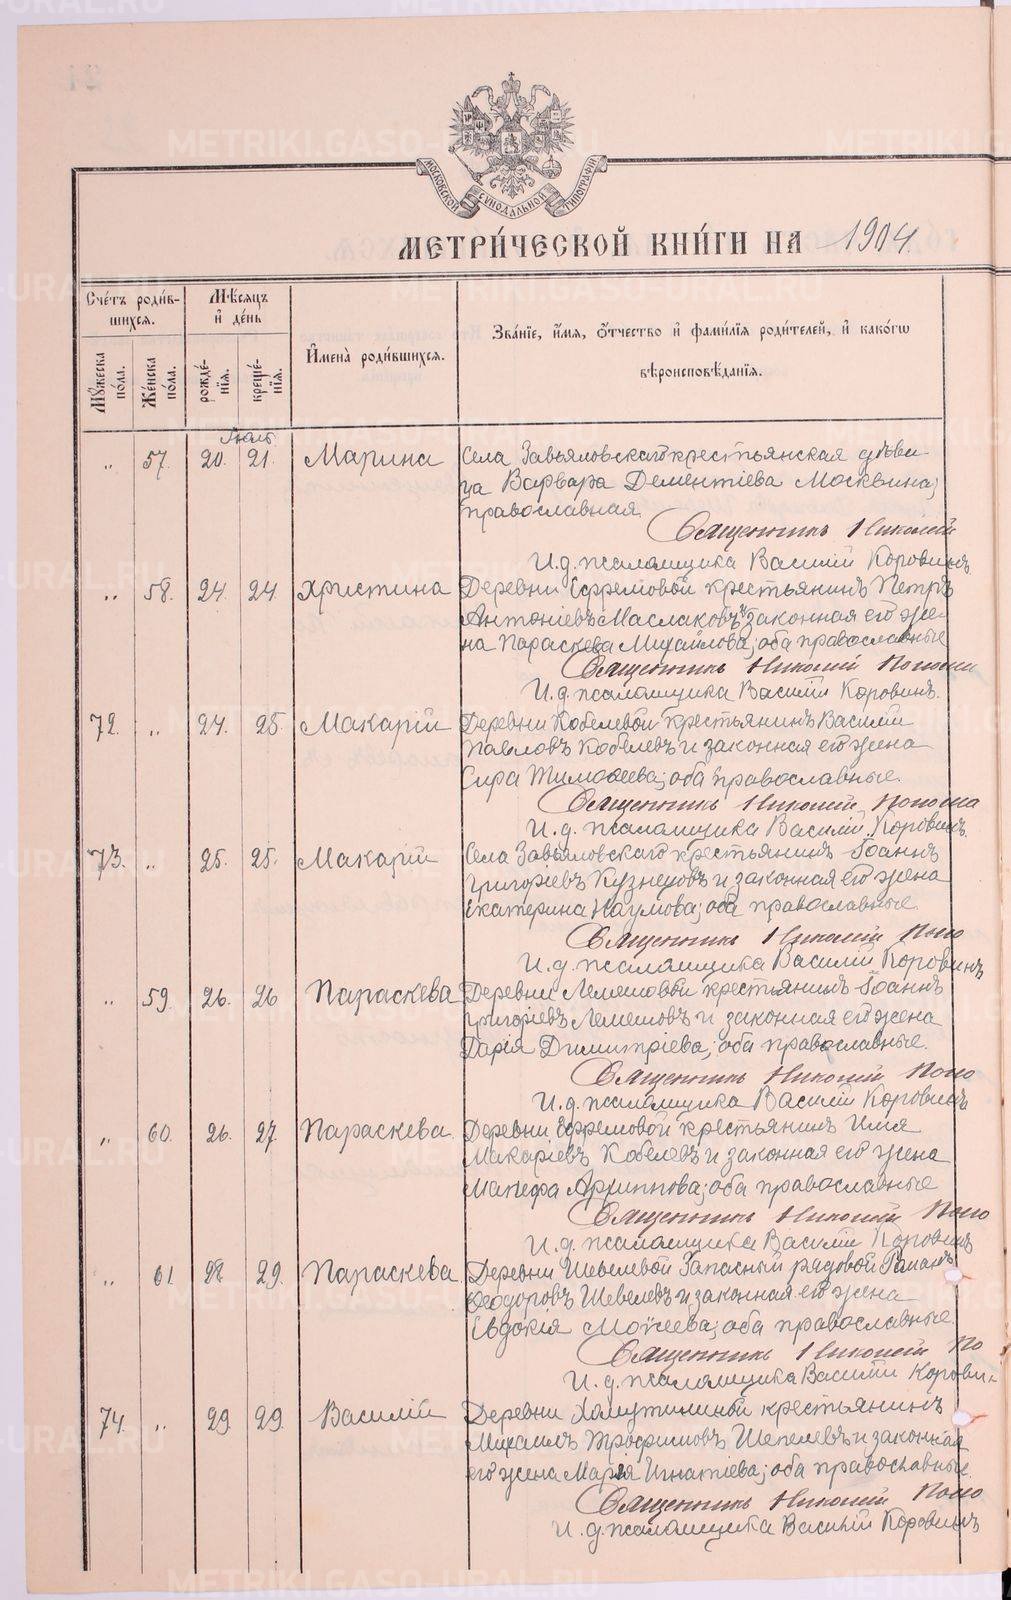 МОСКОВСКОЙ СѴНОДАЛЬНОЙ ТИПОГРАФІИ
МЕТРИ́ЧЕСКОЙ КНИ́ГИ НА 1904.
Сче́тъ роди́вшихся.
Мѣ́сяцъ и де́нь
Имена̀ роди́вшихся.
Зва́нїе, и́мя, о́тчество и фами́лїя роди́телей, и како́гѡ
вѣроисповѣ́данїя.
Мꙋ́жеска по́ла.
Же́нска по́ла.
рожде́нїя.
креще́нїя.
Іюль
„ 57. 20. 21. Марина Села Завьяловскаго крестьянская дѣви-
ца Варвара Дементіева Москвина;
православная.
Священникъ Николай
И.д. псаломщика Василій Коровинъ.
„ 58. 24. 24. Христина Деревни Ефремовой крестьянинъ Петръ
Антоніевъ Маслаковъ и законная его же-
на Параскева Михайлова; оба православные
Священникъ Николай
И.д. псаломщика Василій Коровинъ.
72. „ 24. 25. Макарій Деревни Кобелевой крестьянинъ Василій
Павловъ Кобелевъ и законная его жена
Сира Тимоѳеева; оба православные.
Священникъ Николай
И.д. псаломщика Василій Коровинъ.
73. „ 25. 25. Макарій Села Завьяловскаго крестьянинъ Іоаннъ
Григоріевъ Кузнецовъ и законная его жена
Екатерина Наумова; оба православные.
Священникъ Николай Поно
И.д. псаломщика Василій Коровинъ
„ 59. 26. 26 Параскева Деревни Лемешовой крестьянинъ Іоаннъ
Григоріевъ Лемешовъ и законная его жена
Дарія Димитріева; оба православные.
Священникъ Николай Поно
И.д. псаломщика Василій Коровинъ
„ 60. 26. 27. Параскева. Деревни Ефремовой крестьянинъ Илія
Макаріевъ Кобелевъ и законная его жена
Мапефа Архиппова; оба православные
Священникъ Николай Поно
И.д. псаломщика Василій Коровинъ
„ 61. 28. 29. Параскева. Деревни Шевелевой Запасный рядовой Романъ
Ѳеодоровъ Шевелевъ и законная его жена
Евдокія Моѵсеева; оба православные.
Священникъ Николай По
И.д. псаломщика Василій Корови-
74. „ 29. 29. Василій Деревни Хомутининой крестьянинъ
Михаилъ Трофимовъ Шепелевъ и законная
его жена Марія Игнатіева; оба православные.
Священникъ Николай Поно
И.д. псаломщика Василій Коровинъ
METRIKI.GASO-URAL.RU